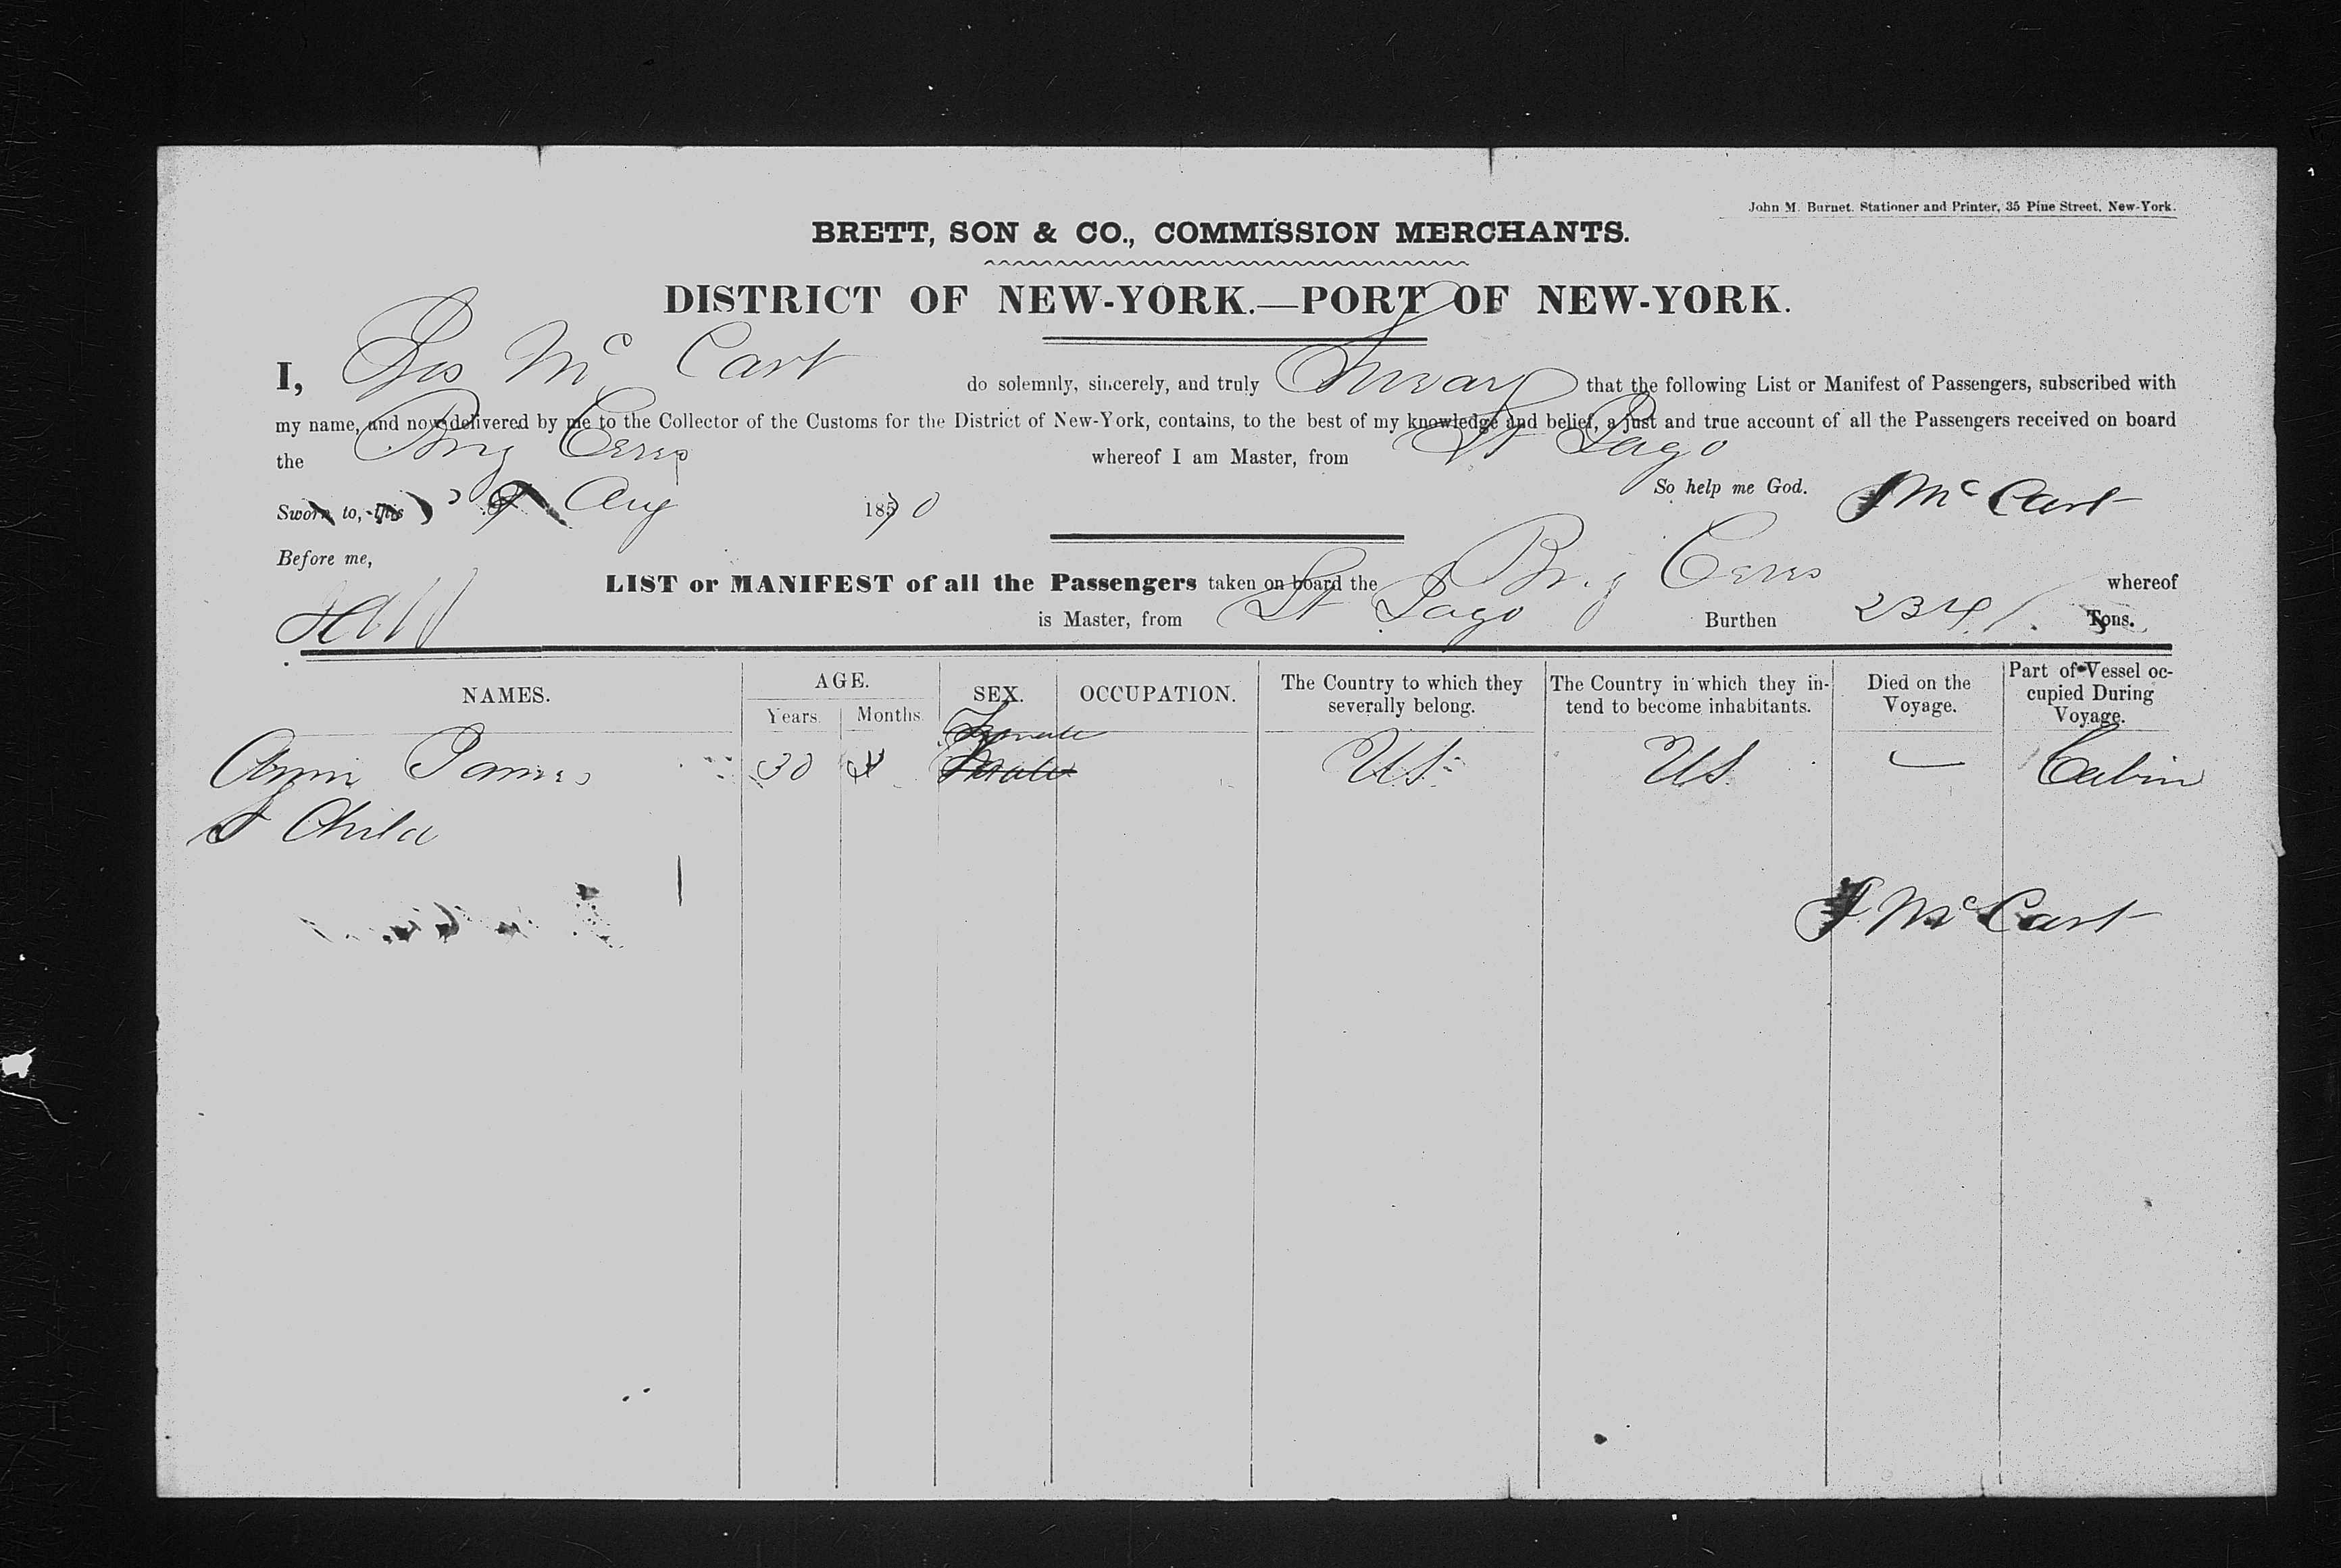 John M. Burnet, Stationer and Printer, 35 Pine Street, New-York.
BRETT, SON & CO., COMMISSION MERCHANTS.
DISTRICT OF NEW-YORK.—PORT OF NEW-YORK.
I, Jos Mc Cart do solemnly, sincerely, and truly Swear that the following List or Manifest of Passengers, subscribed with
my name, and now delivered by me to the Collector of the Customs for the District of New-York, contains, to the best of my knowledge and belief, a just and true account of all the Passengers received on board
the Brig Ceres whereof I am Master, from St Iago
So help me God. J Mc Cart
Sworn to, this Aug 18 0
Before me,
LIST or MANIFEST of all the Passengers taken on board the Brig Ceres whereof
is Master, from St Iago Burthen 234 Tons.
NAMES. AGE. Years. Months. SEX. OCCUPATION. The Country to which they severally belong. The Country in which they intend to become inhabitants. Died on the Voyage. Part of Vessel occupied During Voyage.
Female
Ann James 30 Male US US Cabin
& Child
J Mc Cart